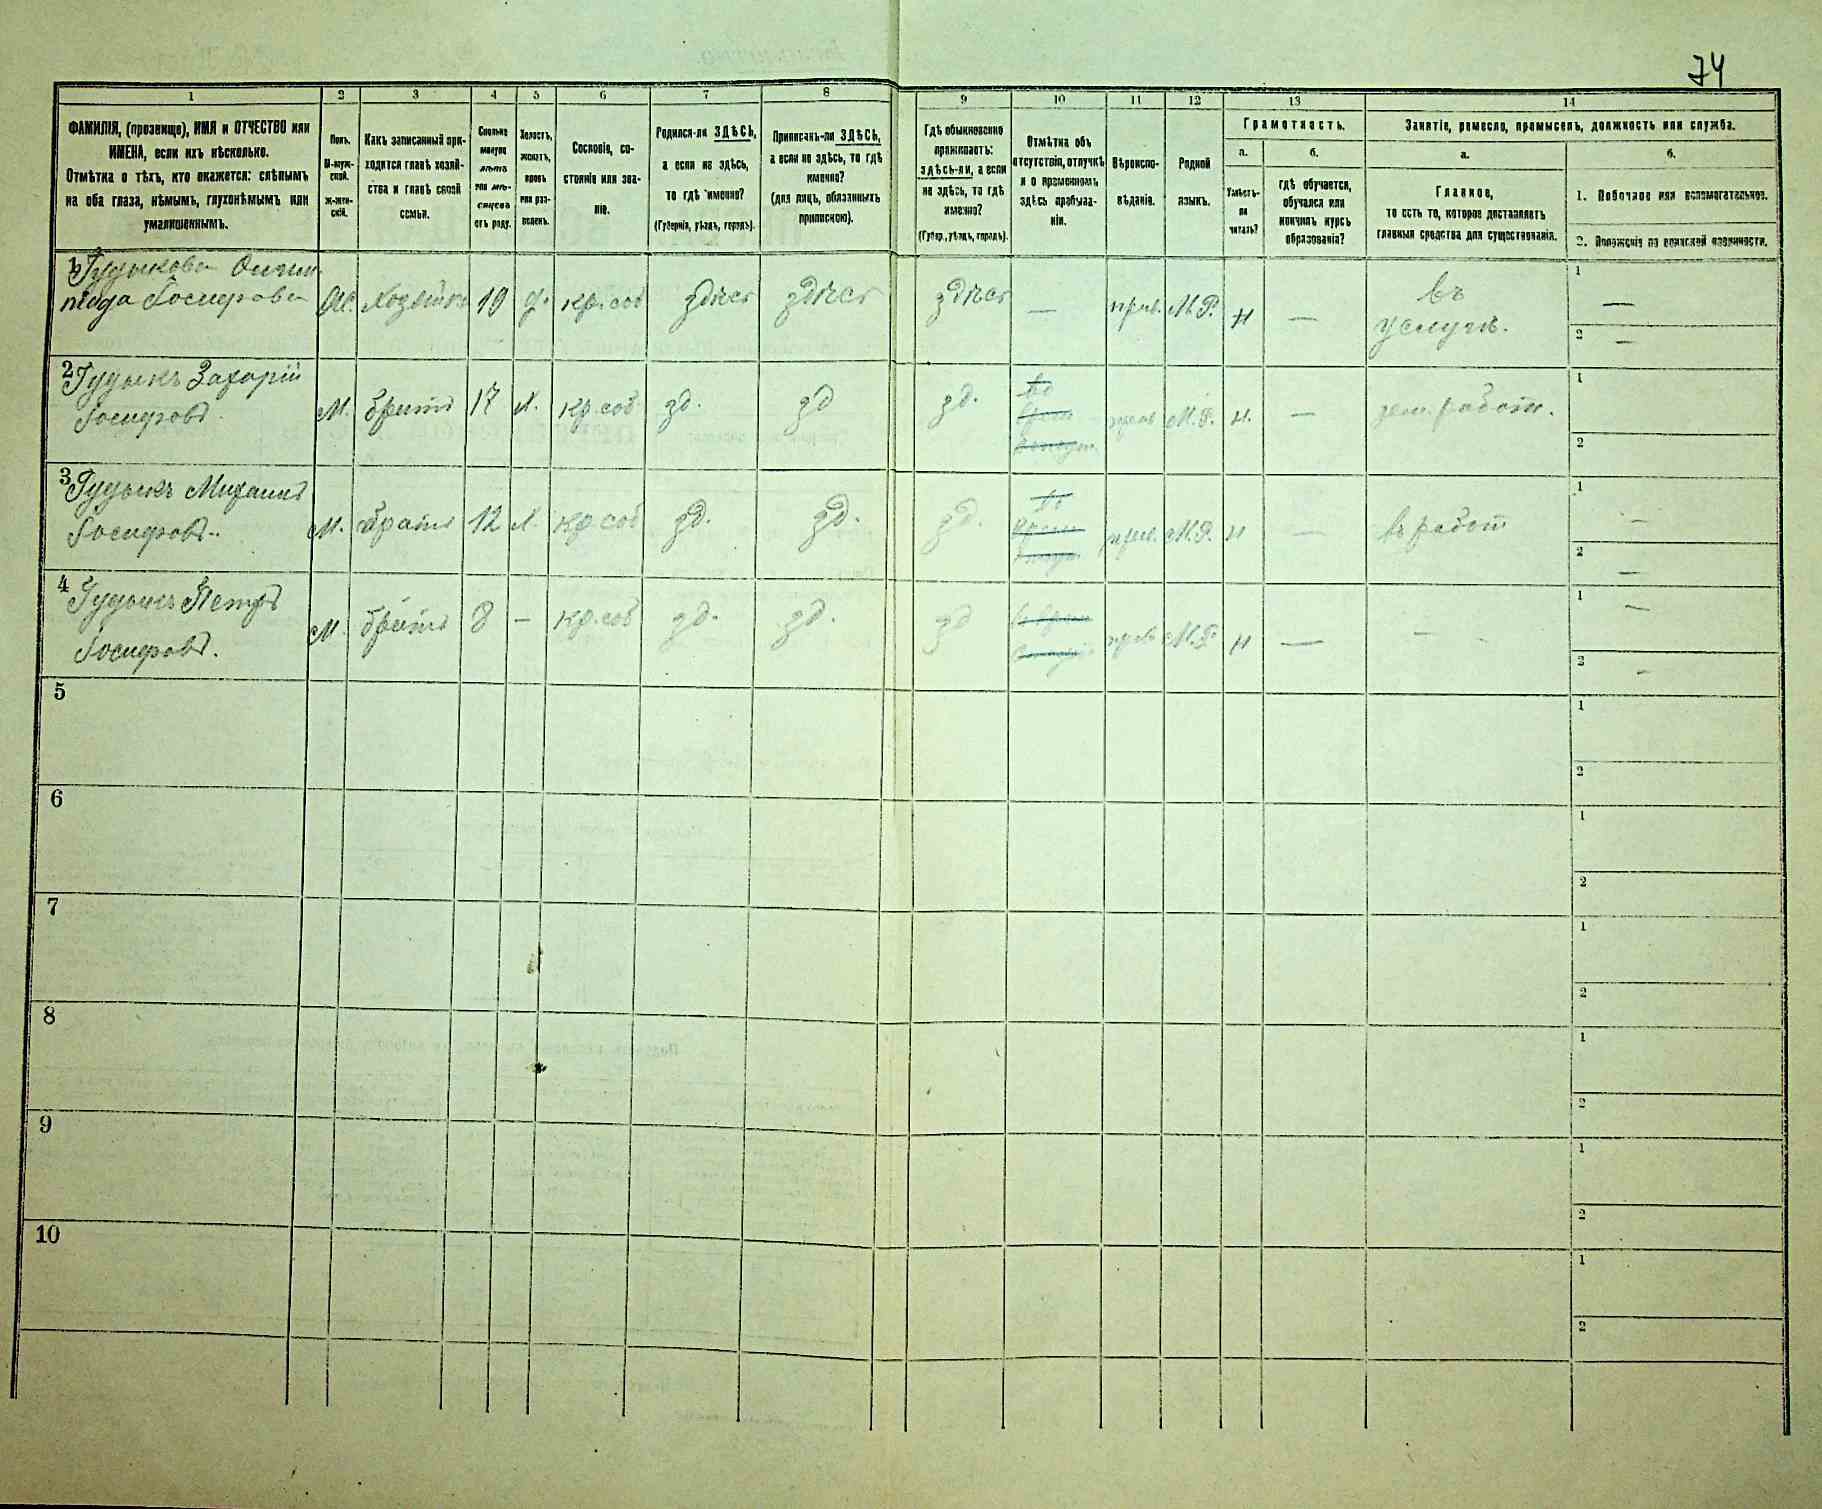 74
1 2 3 4 5 6 7 8 9 10 11 12 13 14
ФАМИЛІЯ, (прозвище), ИМЯ и ОТЧЕСТВО или
ИМЕНА, если ихъ нѣсколько.
Отмѣтка о тѣхъ, кто окажется: слѣпымъ
на оба глаза, нѣмымъ, глухонѣмымъ или
умалишеннымъ.
Полъ.
М-муж-
ской.
Ж-жен-
скій.
Какъ записанный при-
ходится главѣ хозяй-
ства и главѣ своей
семьи.
Сколько
минуло
лѣтъ
или мѣ-
сяцевъ
отъ роду.
Холостъ,
женатъ,
вдовъ
или раз-
веденъ.
Сословіе, со-
стояніе или зва-
ніе.
Родился-ли ЗДѢСЬ,
а если не здѣсь,
то гдѣ именно?
(Губернія, уѣздъ, городъ).
Приписанъ-ли ЗДѢСЬ,
а если не здѣсь, то гдѣ
именно?
(для лицъ, обязанныхъ
припискою).
Гдѣ обыкновенно
проживаетъ:
здѣсь-ли, а если
не здѣсь, то гдѣ
именно?
(Губер., уѣздъ, городъ).
Отмѣтка объ
отсутствіи, отлучкѣ
и о временномъ
здѣсь пребыва-
ніи.
Вѣроиспо-
вѣданіе.
Родной
языкъ.
Грамотность.
а.
Умѣетъ-
ли
читать?
б.
гдѣ обучается,
обучался или
кончилъ курсъ
образованія?
Занятіе, ремесло, промыселъ, должность или служба.
а.
Главное,
то есть то, которое доставляетъ
главныя средства для существованія.
б.
1. Побочное или вспомогательное.
2. Положеніе по воинской повинности.
1 Гудыкова Олим
піада Іосифова Ж. Хозяйка 19 д. кр. соб здѣсь здѣсь здѣсь — прав. М.Р. н — въ
услуж. 1 —
2 —
2 Гудыкъ Захарій
Іосифовъ М. братъ 17 х. кр. соб зд. зд зд. прав М.Р. н. — зем. работ. 1
2
3 Гудыкъ Михаилъ
Іосифовъ.. М. братъ 12 х. кр. соб зд. зд. зд. прав. М.Р. н — въ работ 1 —
2 —
4 Гудыкъ Петръ
Іосифовъ. М. братъ 8 — кр. соб зд. зд. зд прав М.Р. н — — 1 —
2 -
5 1
2
6 1
2
7 1
2
8 1
2
9 1
2
10 1
2